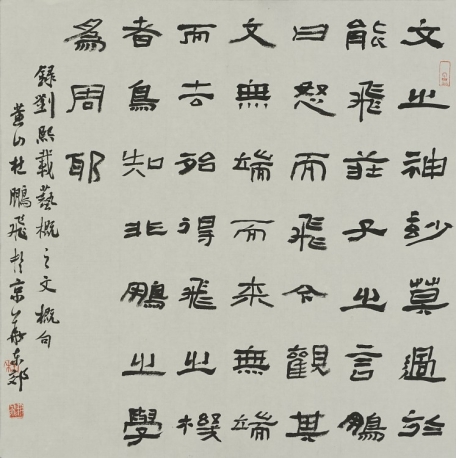 文之神妙莫過於
能飛莊子之言鵬
曰怒而飛今觀其
文無端而來無端
而去殆得飛之機
者烏知非鵬之學
爲周耶
錄劉熙載藝概之文概句
黃山杜鵬飛於京華東郊